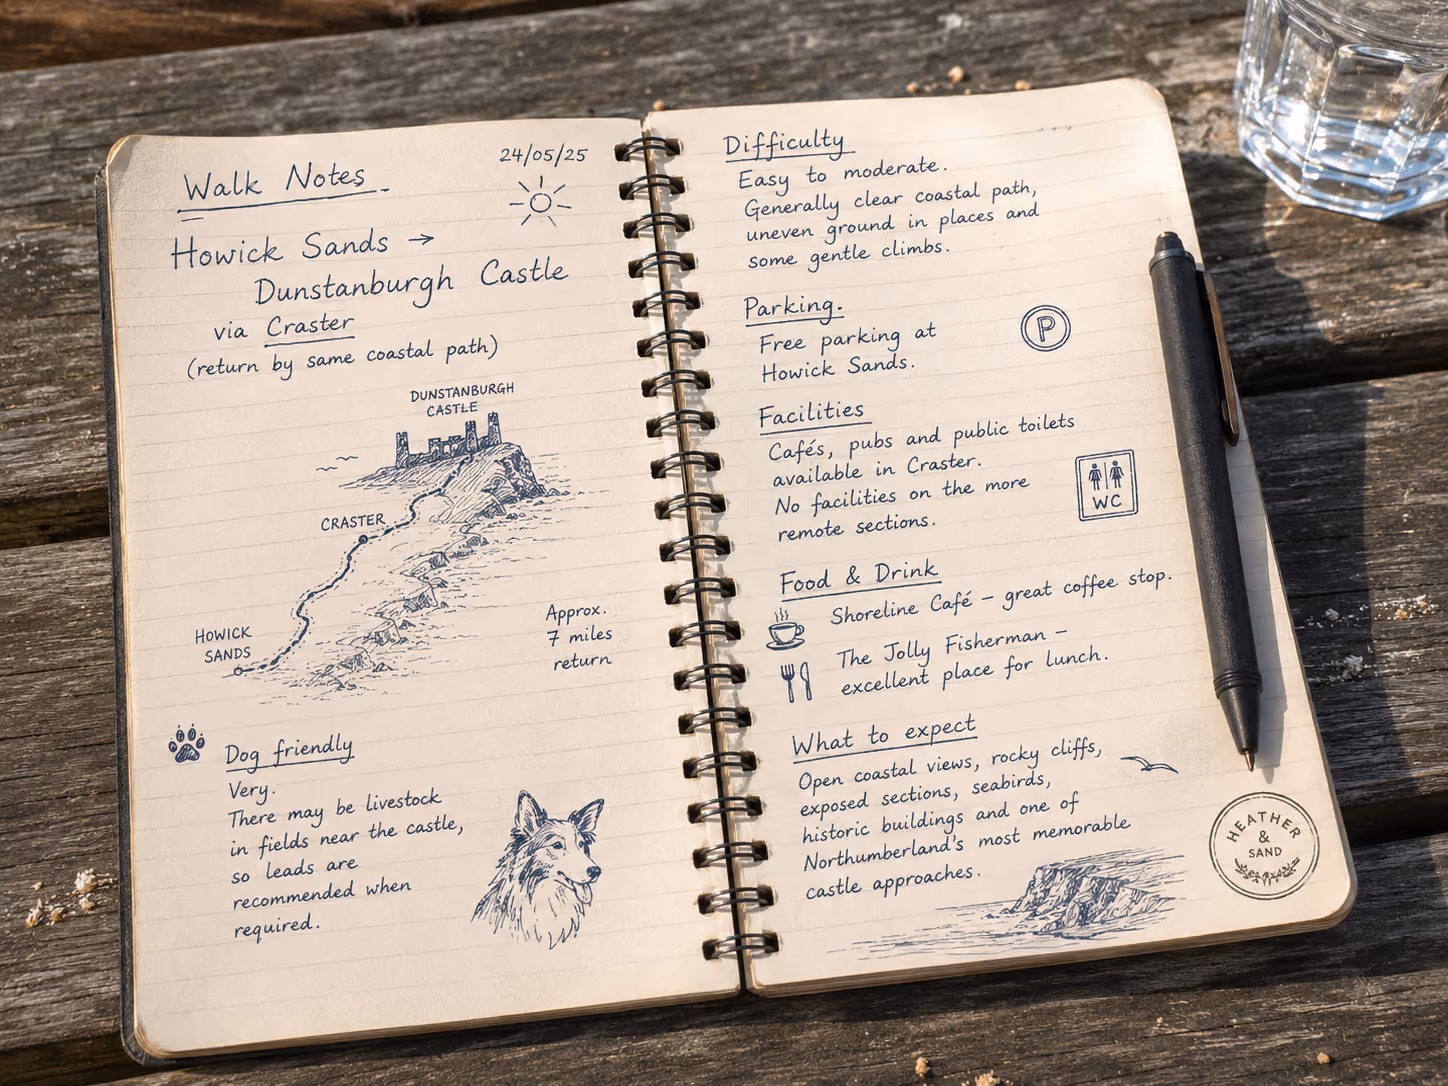 Walk Notes
24/05/25
Howick Sands →
Dunstanburgh Castle
via Craster
(return by same coastal path)
DUNSTANBURGH
CASTLE
CRASTER
HOWICK
SANDS
Approx.
7 miles
return
Dog friendly
Very.
There may be livestock
in fields near the castle,
so leads are
recommended when
required.
Difficulty
Easy to moderate.
Generally clear coastal path,
uneven ground in places and
some gentle climbs.
Parking.
Free parking at
Howick Sands.
P
Facilities
Cafés, pubs and public toilets
available in Craster.
No facilities on the more
remote sections.
WC
Food & Drink
Shoreline Café – great coffee stop.
The Jolly Fisherman –
excellent place for lunch.
What to expect
Open coastal views, rocky cliffs,
exposed sections, seabirds,
historic buildings and one of
Northumberland's most memorable
castle approaches.
HEATHER
&
SAND